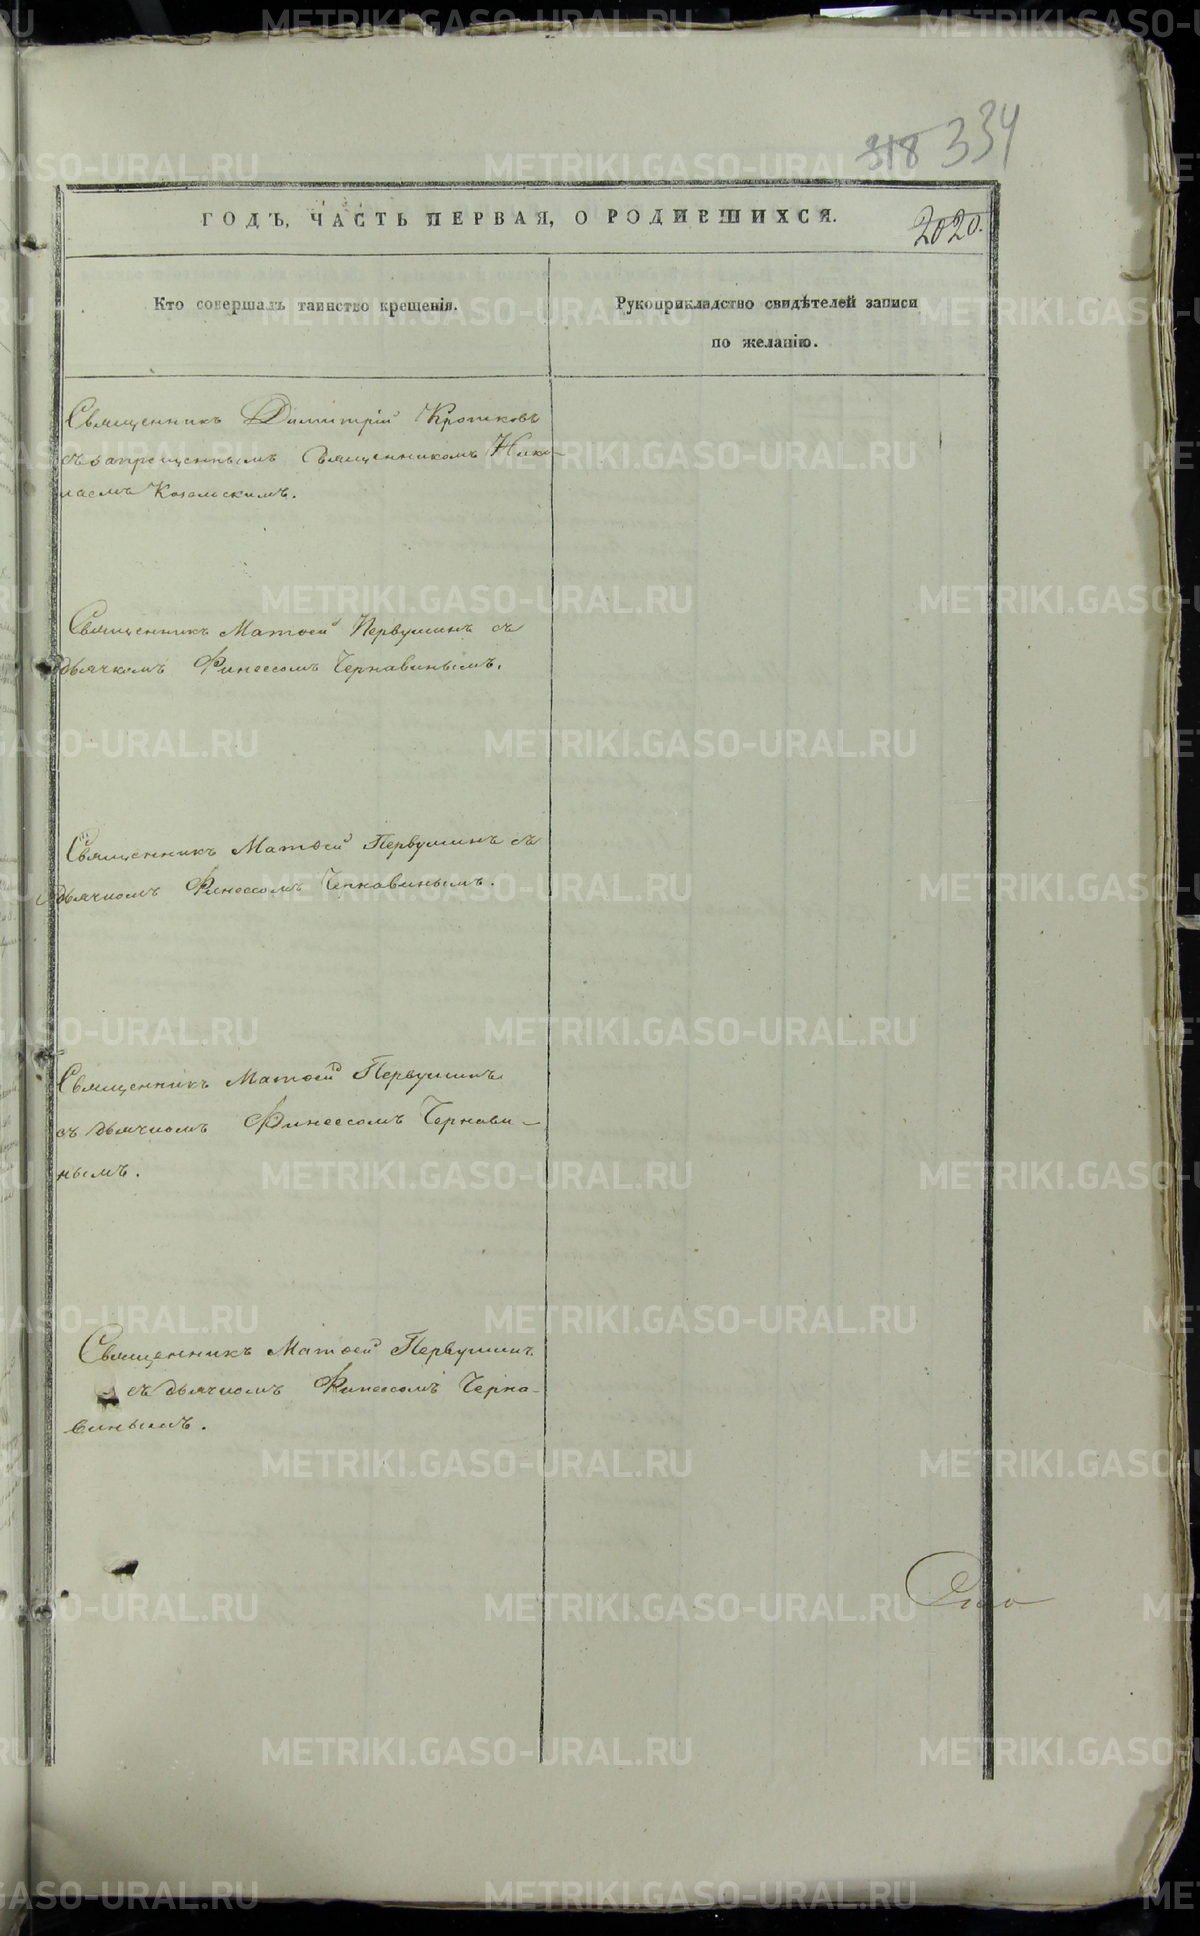 318 334
ГОДЪ, ЧАСТЬ ПЕРВАЯ, О РОДИВШИХСЯ.
2020.
Кто совершалъ таинство крещенія.
Рукоприкладство свидѣтелей записи
по желанію.
Священникъ Димитрій Кротковъ
съ запрещеннымъ Священникомъ Нико-
лаемъ Козельскимъ.
Священникъ Матѳей Первушинъ съ
дьячкомъ Финеесомъ Чернавинымъ.
Священникъ Матѳей Первушинъ съ
дьячкомъ Финеесомъ Чернавинымъ.
Священникъ Матѳей Первушинъ
съ дьячкомъ Финеесомъ Чернави-
нымъ.
Священникъ Матѳей Первушинъ
съ дьячкомъ Финеесомъ Черна-
винымъ.
METRIKI.GASO-URAL.RU